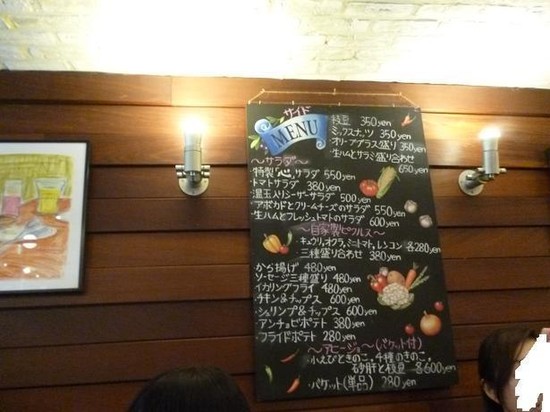 サイド
MENU
枝豆 350yen
ミックスナッツ 350yen
オリーブアラス盛り 350yen
生ハムとサラミ盛り合わせ
650yen
～サラダ～
特製「心」サラダ 550yen
トマトサラダ 380yen
温玉入りシーザーサラダ 500yen
・アボカドとクリームチーズのサラダ 550yen
生ハムとフレッシュトマトのサラダ 600yen
～自家製ピクルス～
・キュウリ,オクラ,ミニトマト,レンコン 各280yen
・三種盛り合わせ 380yen
から揚げ 480yen
ソーセージ三種盛り 480yen
イカリングフライ 480yen
・チキン&チップス 600yen
・シュリンプ&チップス 600yen
・アンチョビポテト 380yen
・フライドポテト 280yen
～アヒージョ～(バケット付)
・小えびときのこ・4種のきのこ・
砂肝と枝豆 各600yen
・バケット(単品) 280yen